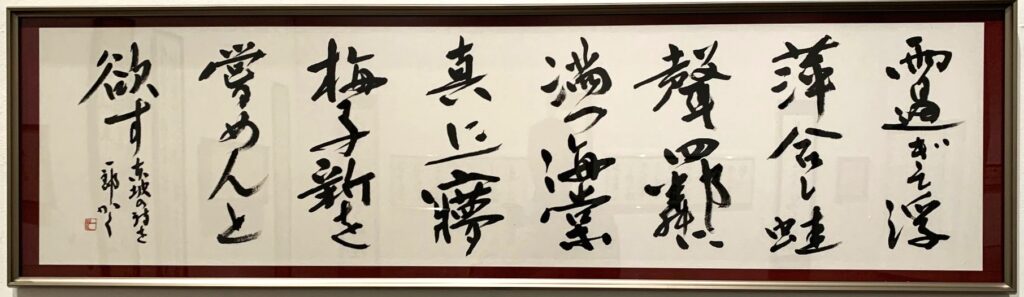 雨過ぎて浮
萍合し蛙
聲四鄰に
満つ海棠
真に一夢
梅子新を
嘗めんと
欲す
東坡の詩を
一郎かく